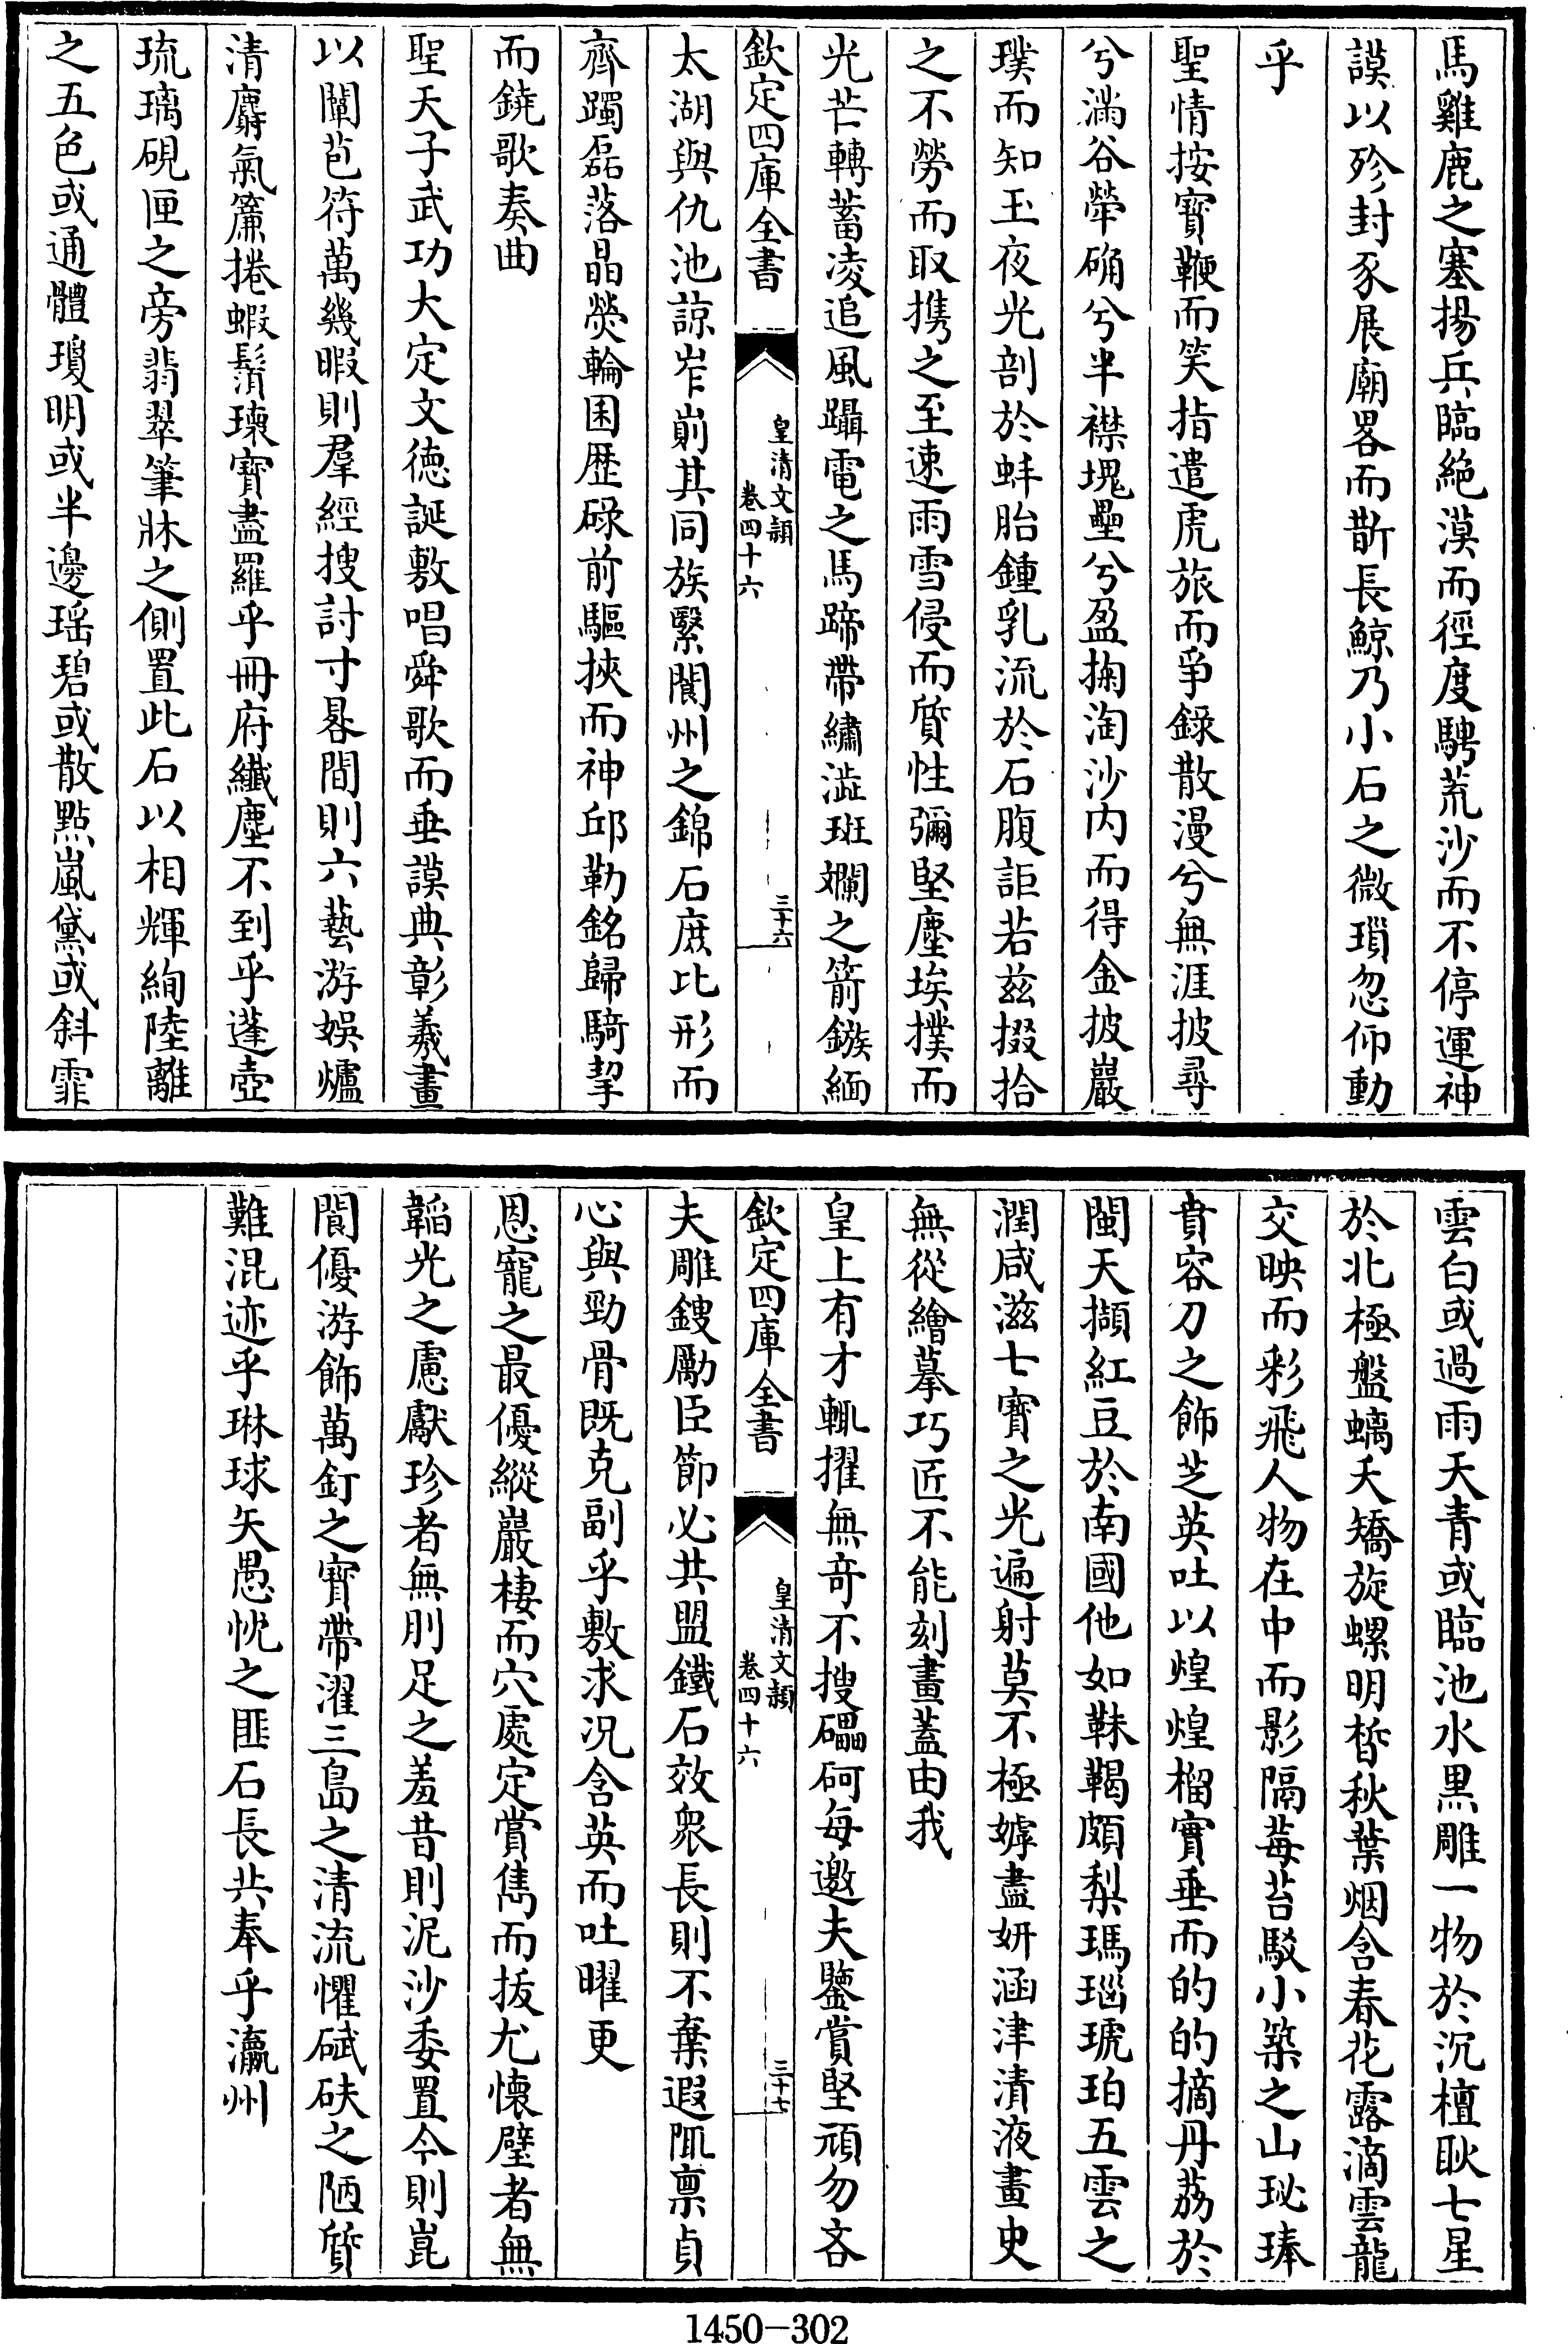 馬雞鹿之塞揚兵臨絶漠而徑度騁荒沙而不停運神
謨以殄封豕展廟畧而斮長鯨乃小石之微瑣忽仰動
乎
聖情按寳鞭而笑指遣虎旅而爭錄散漫兮無涯披尋
兮滿谷犖确兮半襟塊壘兮盈掬淘沙内而得金披巖
璞而知玉夜光剖於蚌胎鍾乳流於石腹詎若兹掇拾
之不勞而取携之至速雨雪侵而質性彌堅塵埃撲而
光芒轉蓄凌追風躡電之馬蹄帶繡澁斑斕之箭鏃緬
欽定四庫全書
皇清文頴
卷四十六
三十六
太湖與仇池諒岝崱其同族緊閬州之錦石庶比形而
齊躅磊落晶熒輪囷歴碌前驅挾而神邱勒銘歸騎挈
而鐃歌奏曲
聖天子武功大定文德誕敷唱舜歌而垂謨典彰羲畫
以闡苞符萬幾暇則羣經搜討寸晷間則六藝游娛爐
清麝氣簾捲蝦鬚瓌寳盡羅乎冊府纖塵不到乎蓬壺
琉璃硯匣之旁翡翠筆牀之側置此石以相輝絢陸離
之五色或通體瓊明或半邊瑶碧或散點嵐黛或斜霏
雲白或過雨天青或臨池水黒雕一物於沉檀耿七星
於北極盤螭夭矯旋螺明晳秋葉烟含春花露滴雲龍
交映而彩飛人物在中而影隔莓苔駁小築之山珌琫
賁容刀之飾芝英吐以煌煌榴實垂而的的摘丹荔於
閩天擷紅豆於南國他如靺鞨頗梨瑪瑙琥珀五雲之
潤咸滋七寳之光遍射莫不極嫭盡妍涵津漬液畫史
無從繪摹巧匠不能刻畫蓋由我
皇上有才輒擢無竒不搜礧砢每邀夫鑒賞堅頑勿吝
欽定四庫全書
皇清文頴
卷四十六
三十七
夫雕鎪勵臣節必共盟鐵石效衆長則不棄遐陬禀貞
心與勁骨既克副乎敷求况含英而吐曜更
恩寵之最優縱巖棲而穴處定賞雋而拔尤懐璧者無
韜光之慮獻珍者無刖足之羞昔則泥沙委置今則崑
閬優游飾萬釘之寳帶濯三島之清流懼碔砆之陋質
難混迹乎琳球矢愚忱之匪石長共奉乎瀛州
1450-302